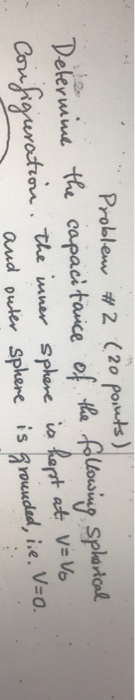 Problem # 2 (20 points)
Determine the capacitance of the following Spherical
Configuration. the inner sphere is kept at V=V₀
and outer sphere is grounded, i.e. V=0.